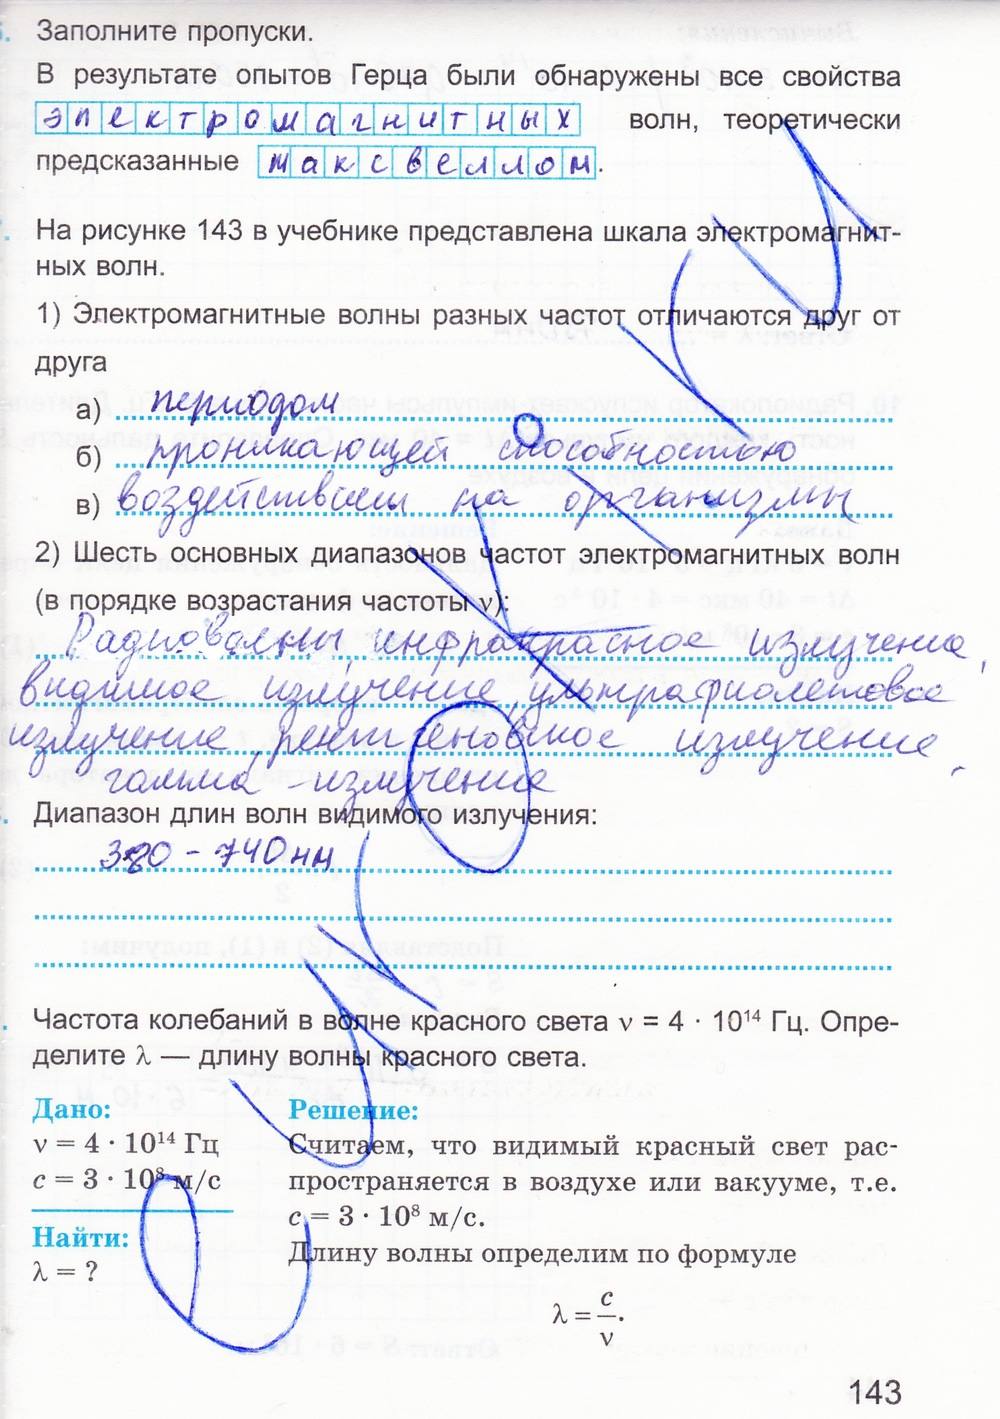 Заполните пропуски.
В результате опытов Герца были обнаружены все свойства
электромагнитных волн, теоретически
предсказанные максвеллом.
На рисунке 143 в учебнике представлена шкала электромагнит-
ных волн.
1) Электромагнитные волны разных частот отличаются друг от
друга
а) периодом
б) проникающей способностью
в) воздействием на организмы
2) Шесть основных диапазонов частот электромагнитных волн
(в порядке возрастания частоты ν):
Радиоволны, инфракрасное излучение,
видимое излучение, ультрафиолетовое
излучение, рентгеновское излучение,
гамма-излучение
Диапазон длин волн видимого излучения:
380 - 740 нм
Частота колебаний в волне красного света ν = 4 · 10¹⁴ Гц. Опре-
делите λ — длину волны красного света.
Дано:
ν = 4 · 10¹⁴ Гц
c = 3 · 10⁸ м/с
Найти:
λ = ?
Решение:
Считаем, что видимый красный свет рас-
пространяется в воздухе или вакууме, т.е.
c = 3 · 10⁸ м/с.
Длину волны определим по формуле
λ = c/ν.
143